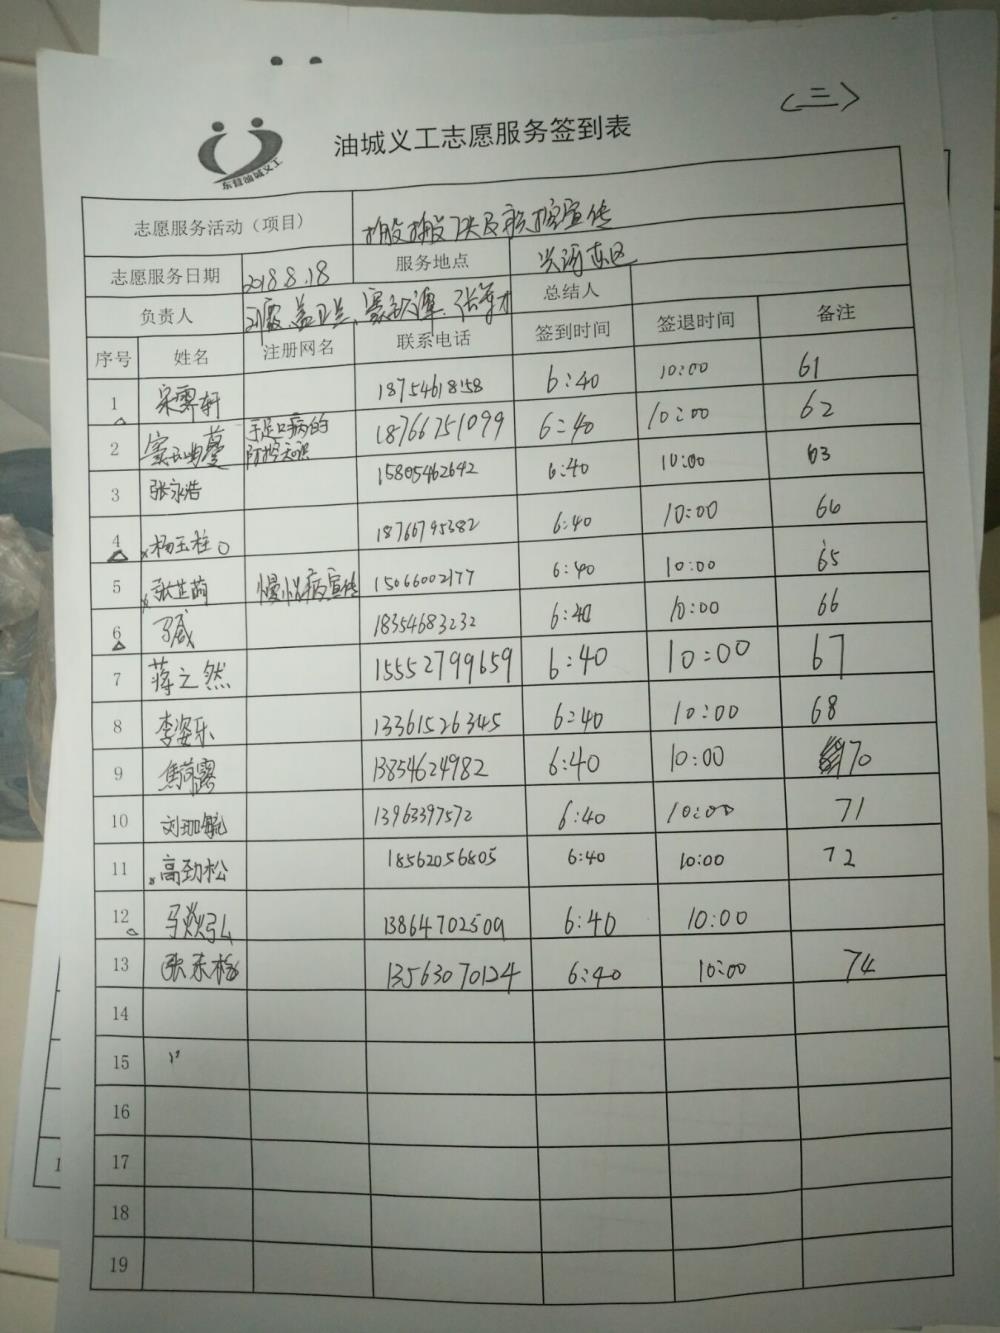 （三）
油城义工志愿服务签到表
东营油城义工
志愿服务活动（项目） 宣传
志愿服务日期 2018.8.18 服务地点 兴河东区
负责人 总结人
序号 姓名 注册网名 联系电话 签到时间 签退时间 备注
1 宋霁轩 18754618158 6:40 10:00 61
2 手足口病的防控知识 18766751099 6:40 10:00 62
3 张永浩 15805462642 6:40 10:00 63
4 杨玉柱 18766795382 6:40 10:00 64
5 张芷菡 慢性病宣传 15066002177 6:40 10:00 65
6 18354683232 6:40 10:00 66
7 蒋之然 15552799659 6:40 10:00 67
8 李姿乐 13361526345 6:40 10:00 68
9 13854624982 6:40 10:00 70
10 13963397572 6:40 10:00 71
11 高劲松 18562056805 6:40 10:00 72
12 13864702509 6:40 10:00
13 张东栋 13563070124 6:40 10:00 74
14
15
16
17
18
19